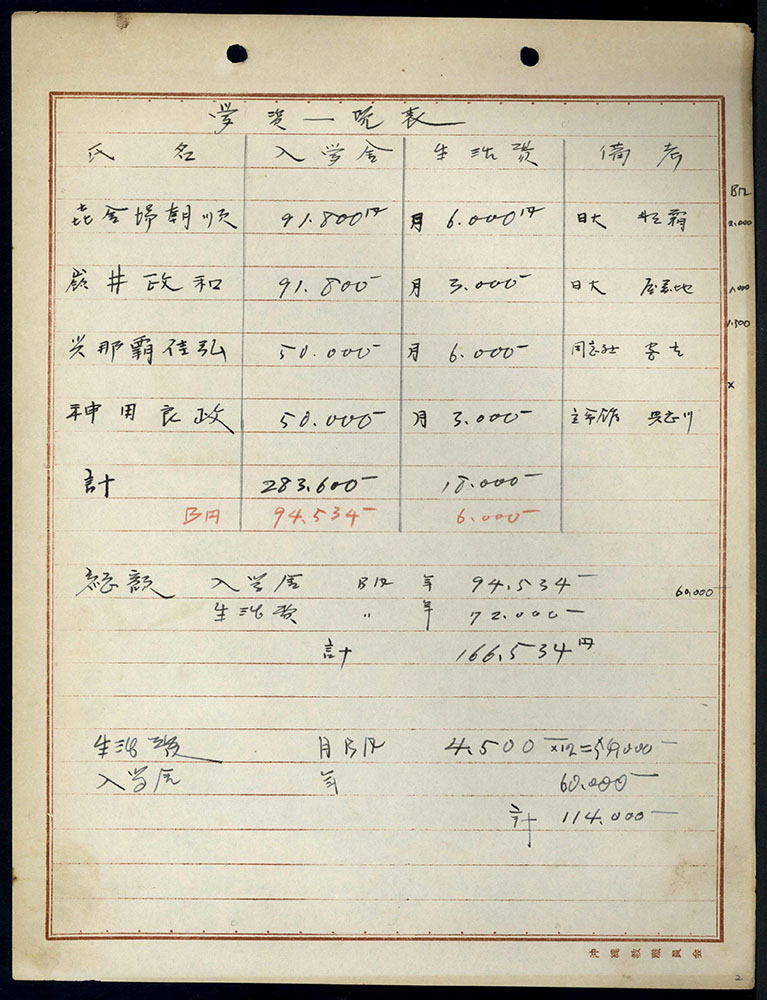 学資一覧表
氏名 入学金 生活費 備考
喜舎場朝順 91.800円 月 6.000円 日大
嶺井政和 91.800- 月 3.000- 日大 屋慶地
与那覇佳弘 50.000- 月 6.000- 同志社 宮古
神田良政 50.000- 月 3.000- 立命館 具志川
計 283.600- 18.000-
B円 94.534- 6.000-
B円
2.000
1.000
1.500
x
総額 入学金 B円 年 94.534-
60.000-
生活費 〃 年 72.000-
計 166.534円
生活費 月B円 4.500 x12=54.000-
入学金 年 60.000-
計 114.000-
沖縄教職員会
2